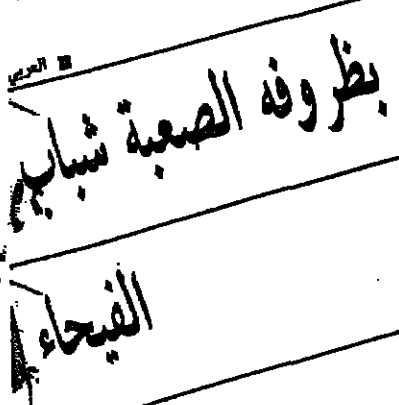 العربي
بظروفه الصعبة شباب
الفيحاء